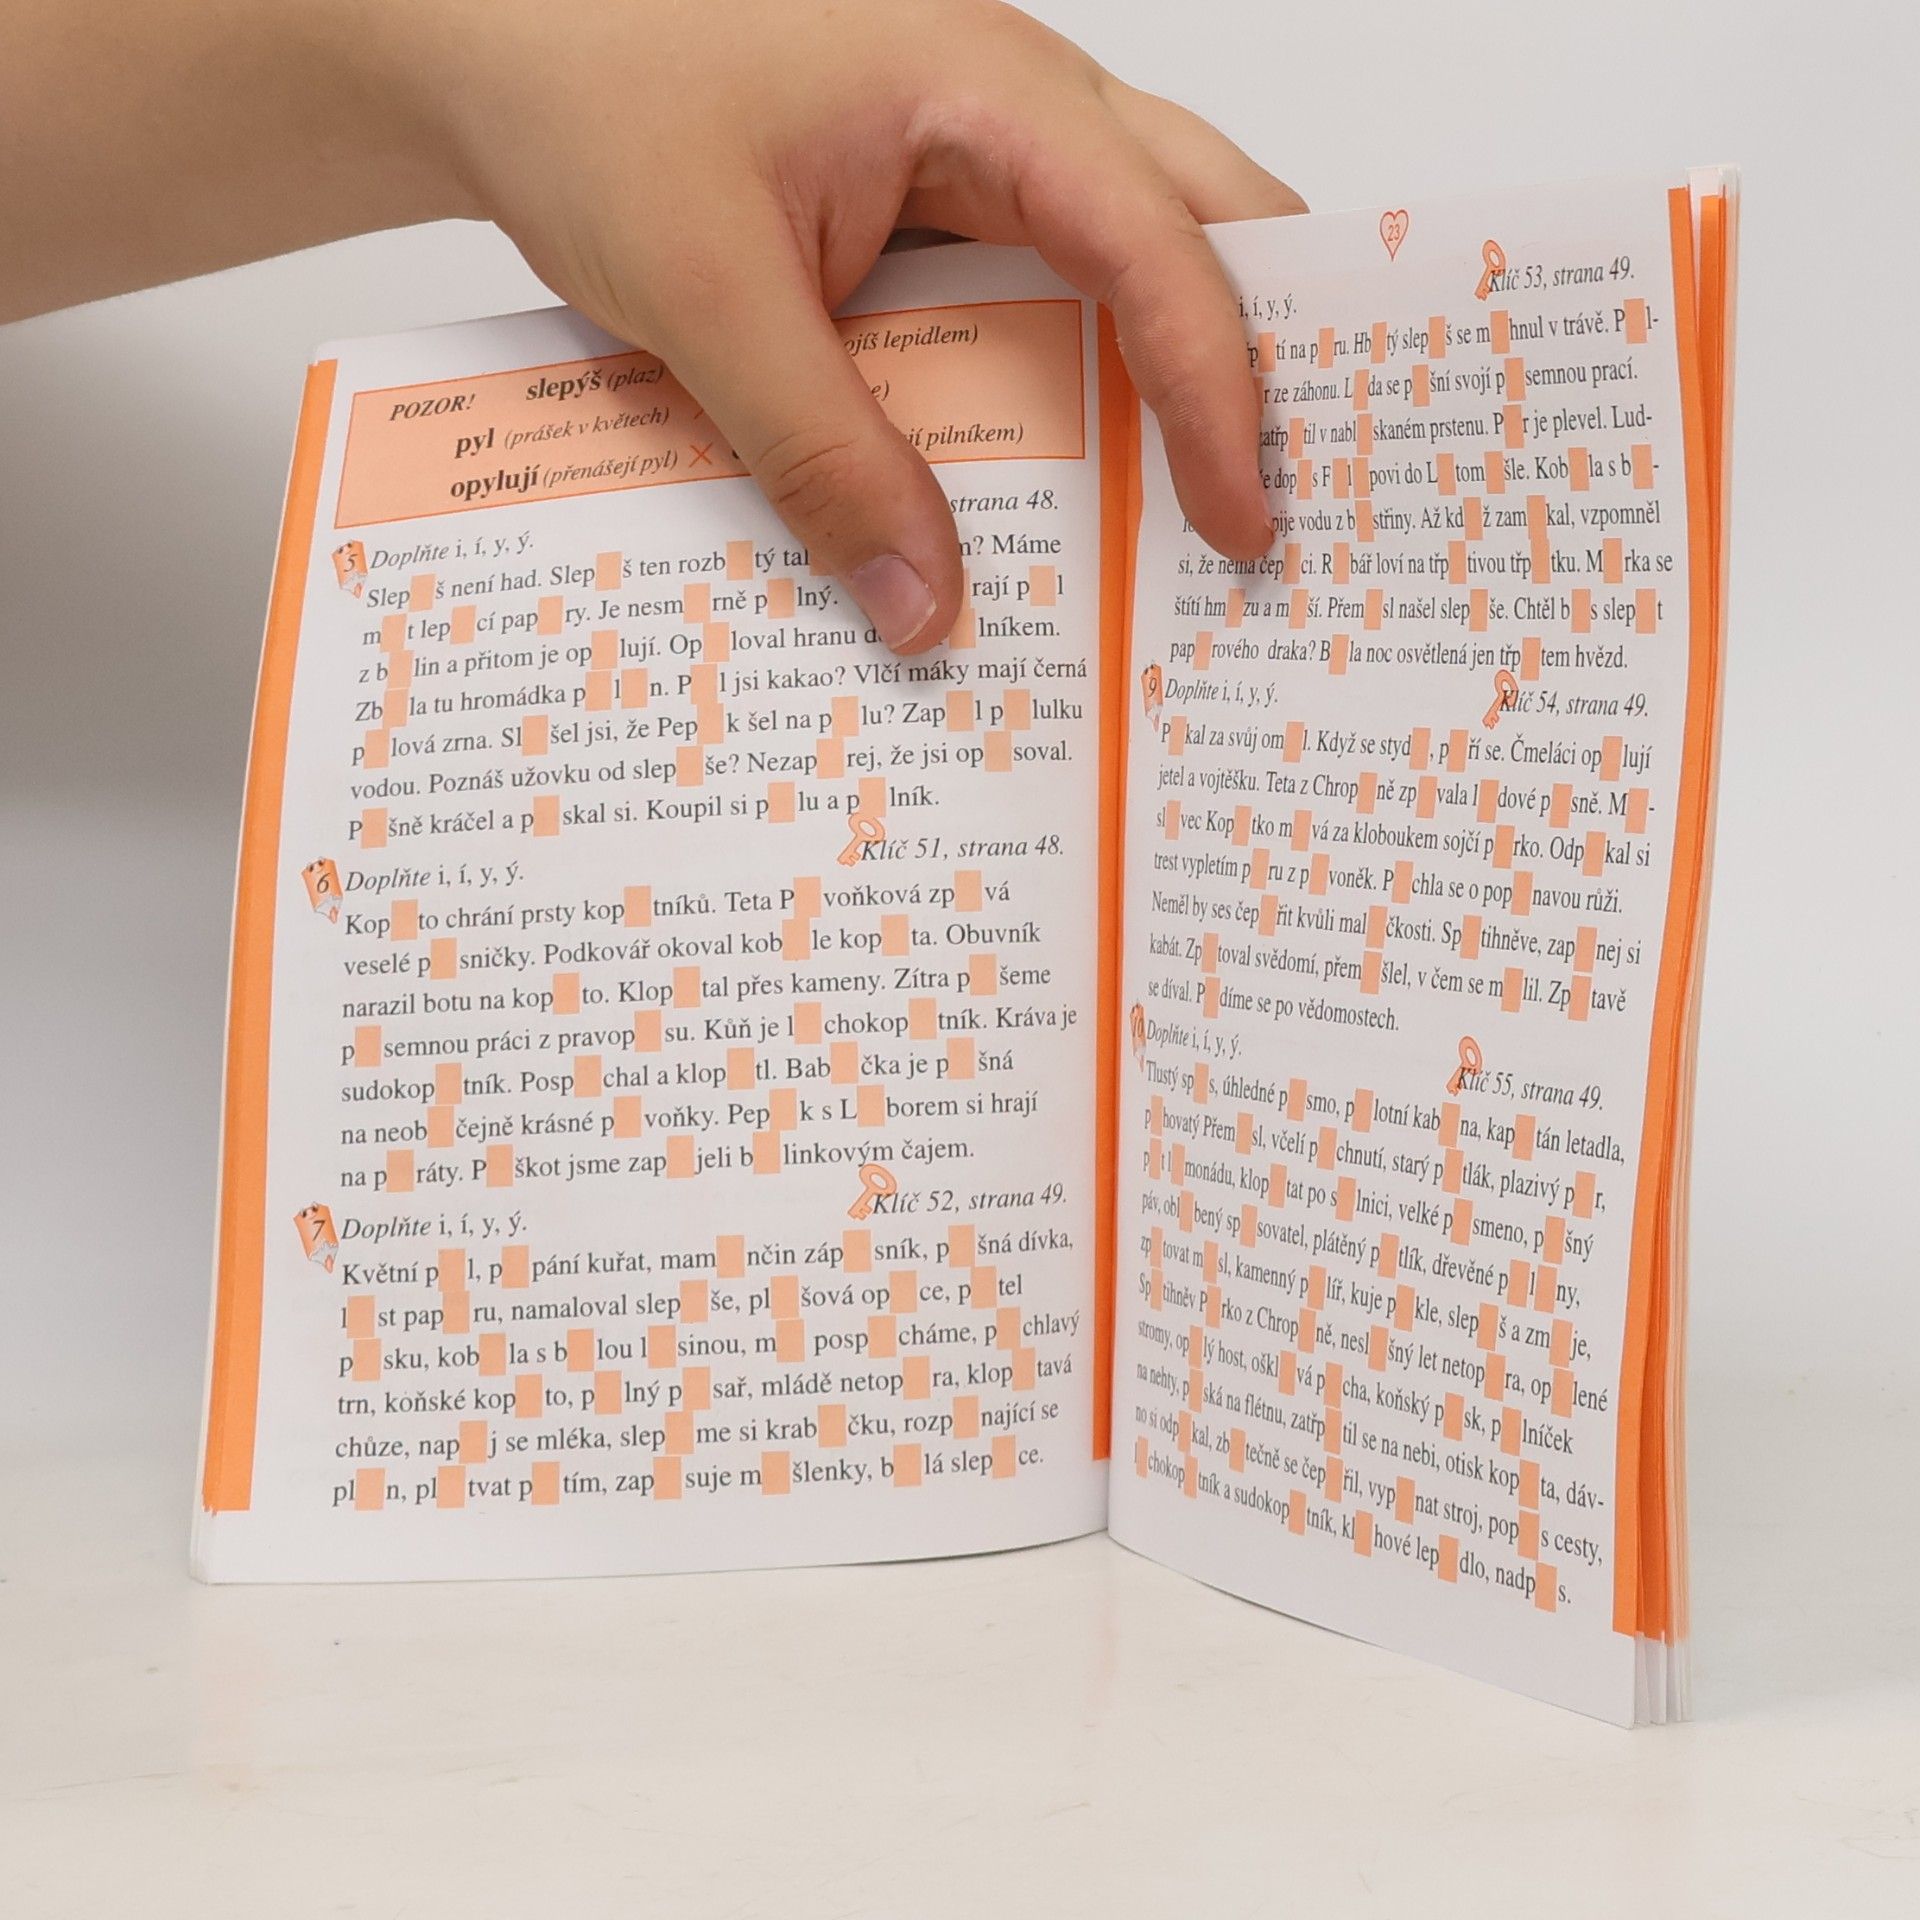 POZOR! slepýš (plaz) ojíš lepidlem)
pyl (prášek v květech)
opylují (přenášejí pyl) × pilníkem)
strana 48.
5 Doplňte i, í, y, ý.
Slep š není had. Slep š ten rozb tý Máme
m t lep cí pap ry. Je nesm rně p lný. rají p l
z b lin a přitom je op lují. Op loval hranu lníkem.
Zb la tu hromádka p l n. P l jsi kakao? Vlčí máky mají černá
p lová zrna. Sl šel jsi, že Pep k šel na p lu? Zap l p lulku
vodou. Poznáš užovku od slep še? Nezap rej, že jsi op soval.
P šně kráčel a p skal si. Koupil si p lu a p lník.
Klíč 51, strana 48.
6 Doplňte i, í, y, ý.
Kop to chrání prsty kop tníků. Teta P voňková zp vá
veselé p sničky. Podkovář okoval kob le kop ta. Obuvník
narazil botu na kop to. Klop tal přes kameny. Zítra p šeme
p semnou práci z pravop su. Kůň je l chokop tník. Kráva je
sudokop tník. Posp chal a klop tl. Bab čka je p šná
na neob čejně krásné p voňky. Pep k s L borem si hrají
na p ráty. P škot jsme zap jeli b linkovým čajem.
Klíč 52, strana 49.
7 Doplňte i, í, y, ý.
Květní p l, p pání kuřat, mam nčin záp sník, p šná dívka,
l st pap ru, namaloval slep še, pl šová op ce, p tel
p sku, kob la s b lou l sinou, m posp cháme, p chlavý
trn, koňské kop to, p lný p sař, mládě netop ra, klop tavá
chůze, nap j se mléka, slep me si krab čku, rozp nající se
pl n, pl tvat p tím, zap suje m šlenky, b lá slep ce.
23
Klíč 53, strana 49.
i, í, y, ý.
tí na p ru. Hb tý slep š se m hnul v trávě. P l-
r ze záhonu. L da se p šní svojí p semnou prací.
zatřp til v nabl skaném prstenu. P r je plevel. Lud-
dop s F l povi do L tom šle. Kob la s b -
pije vodu z b střiny. Až kd ž zam kal, vzpomněl
si, že nemá čep ci. R bář loví na třp tivou třp tku. M rka se
štítí hm zu a m ší. Přem sl našel slep še. Chtěl b s slep t
pap rového draka? B la noc osvětlená jen třp tem hvězd.
9 Doplňte i, í, y, ý.
Klíč 54, strana 49.
P kal za svůj om l. Když se styd , p ří se. Čmeláci op lují
jetel a vojtěšku. Teta z Chrop ně zp vala l dové p sně. M -
sl vec Kop tko m vá za kloboukem sojčí p rko. Odp kal si
trest vypletím p ru z p voněk. P chla se o pop navou růži.
Neměl by ses čep řit kvůli mal čkosti. Sp tihněve, zap nej si
kabát. Zp toval svědomí, přem šlel, v čem se m lil. Zp tavě
se díval. P díme se po vědomostech.
10 Doplňte i, í, y, ý.
Klíč 55, strana 49.
Tlustý sp s, úhledné p smo, p lotní kab na, kap tán letadla,
p hovatý Přem sl, včelí p chnutí, starý p tlák, plazivý p r,
p t l monádu, klop tat po s lnici, velké p smeno, p šný
páv, obl bený sp sovatel, plátěný p tlík, dřevěné p l ny,
zp tovat m sl, kamenný p líř, kuje p kle, slep š a zm je,
Sp tihněv P rko z Chrop ně, nesl šný let netop ra, op lené
stromy, op lý host, oškl vá p cha, koňský p sk, p lníček
na nehty, p ská na flétnu, zatřp til se na nebi, otisk kop ta, dáv-
no si odp kal, zb tečně se čep řil, vyp nat stroj, pop s cesty,
l chokop tník a sudokop tník, kl hové lep dlo, nadp s.